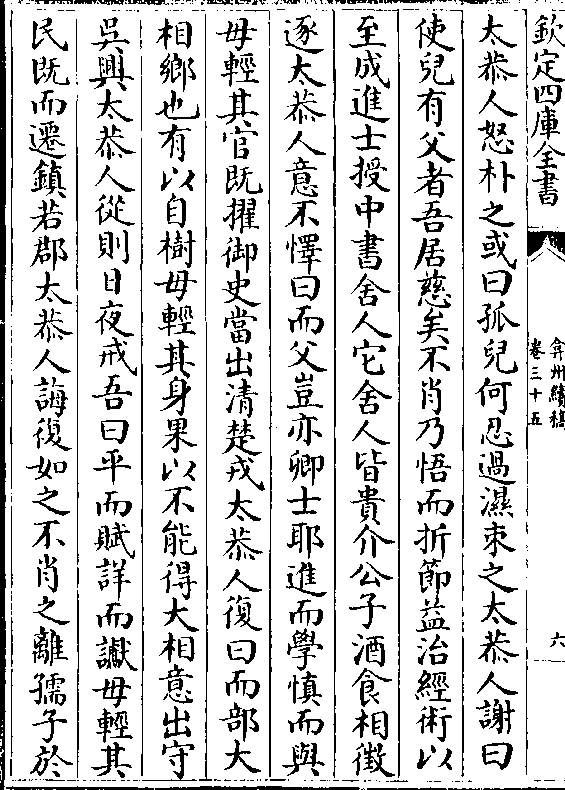 欽定四庫全書
弇州續稿
卷三十五
六
太恭人怒朴之或曰孤兒何忍過濕束之太恭人謝曰
使兒有父者吾居慈矣不肖乃悟而折節益治經術以
至成進士授中書舍人它舍人皆貴介公子酒食相徵
逐太恭人意不懌曰而父豈亦卿士耶進而學慎而與
毋輕其官既擢御史當出清楚戎太恭人復曰而部大
相鄉也有以自樹毋輕其身果以不能得大相意出守
吳興太恭人從則日夜戒吾曰平而賦詳而讞毋輕其
民既而遷鎮若郡太恭人誨復如之不肖之離孺子於